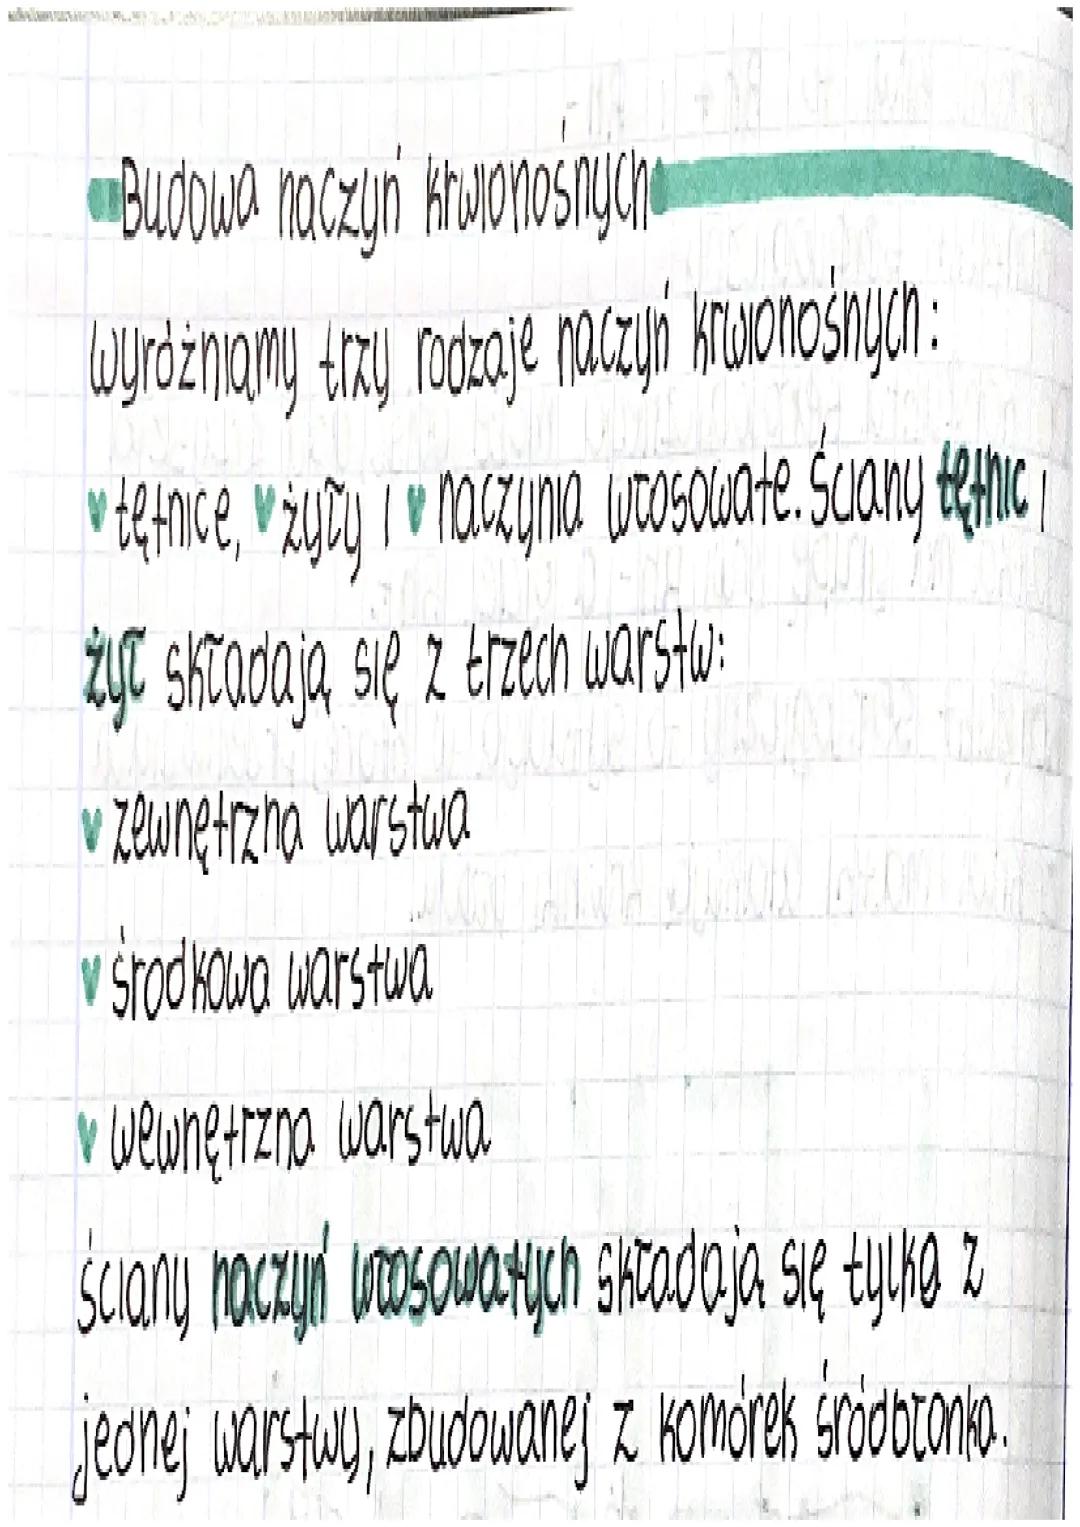 Budowa naczyń krwionośnych
wyróżniamy trzy rodzaje naczyń krwionośnych:
tętnice, żyły i naczynia włosowate. Ściany tętnic i
żył składają się z trzech warstw:
zewnętrzna warstwa
środkowa warstwa
wewnętrzna warstwa
ściany naczyń włosowatych składają się tylko z
jednej warstwy, zbudowanej z komórek śródbłonka.